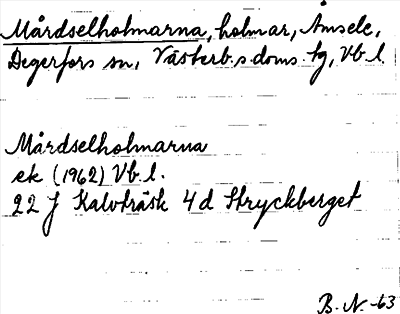 Mårdselholmarna, holmar, Åmsele,
Degerfors sn, Västerb.s doms. tg, Vb.l.
Mårdselholmarna
ek (1962) Vb.l.
22 J Kalvträsk 4 d Stryckberget
B.N.-63